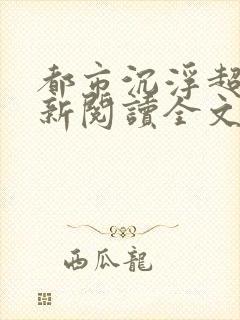 都市沉浮超
新閱讀全文
西瓜龍